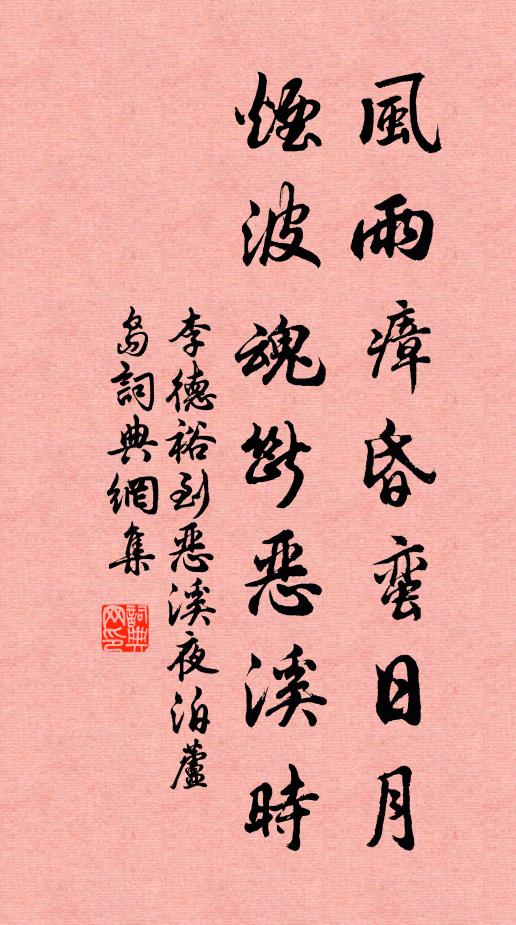 風雨瘴昏蛮日月
煙波魂斷惡溪時
李德裕到惡溪夜泊蘆
島詞典網集
詞典網印